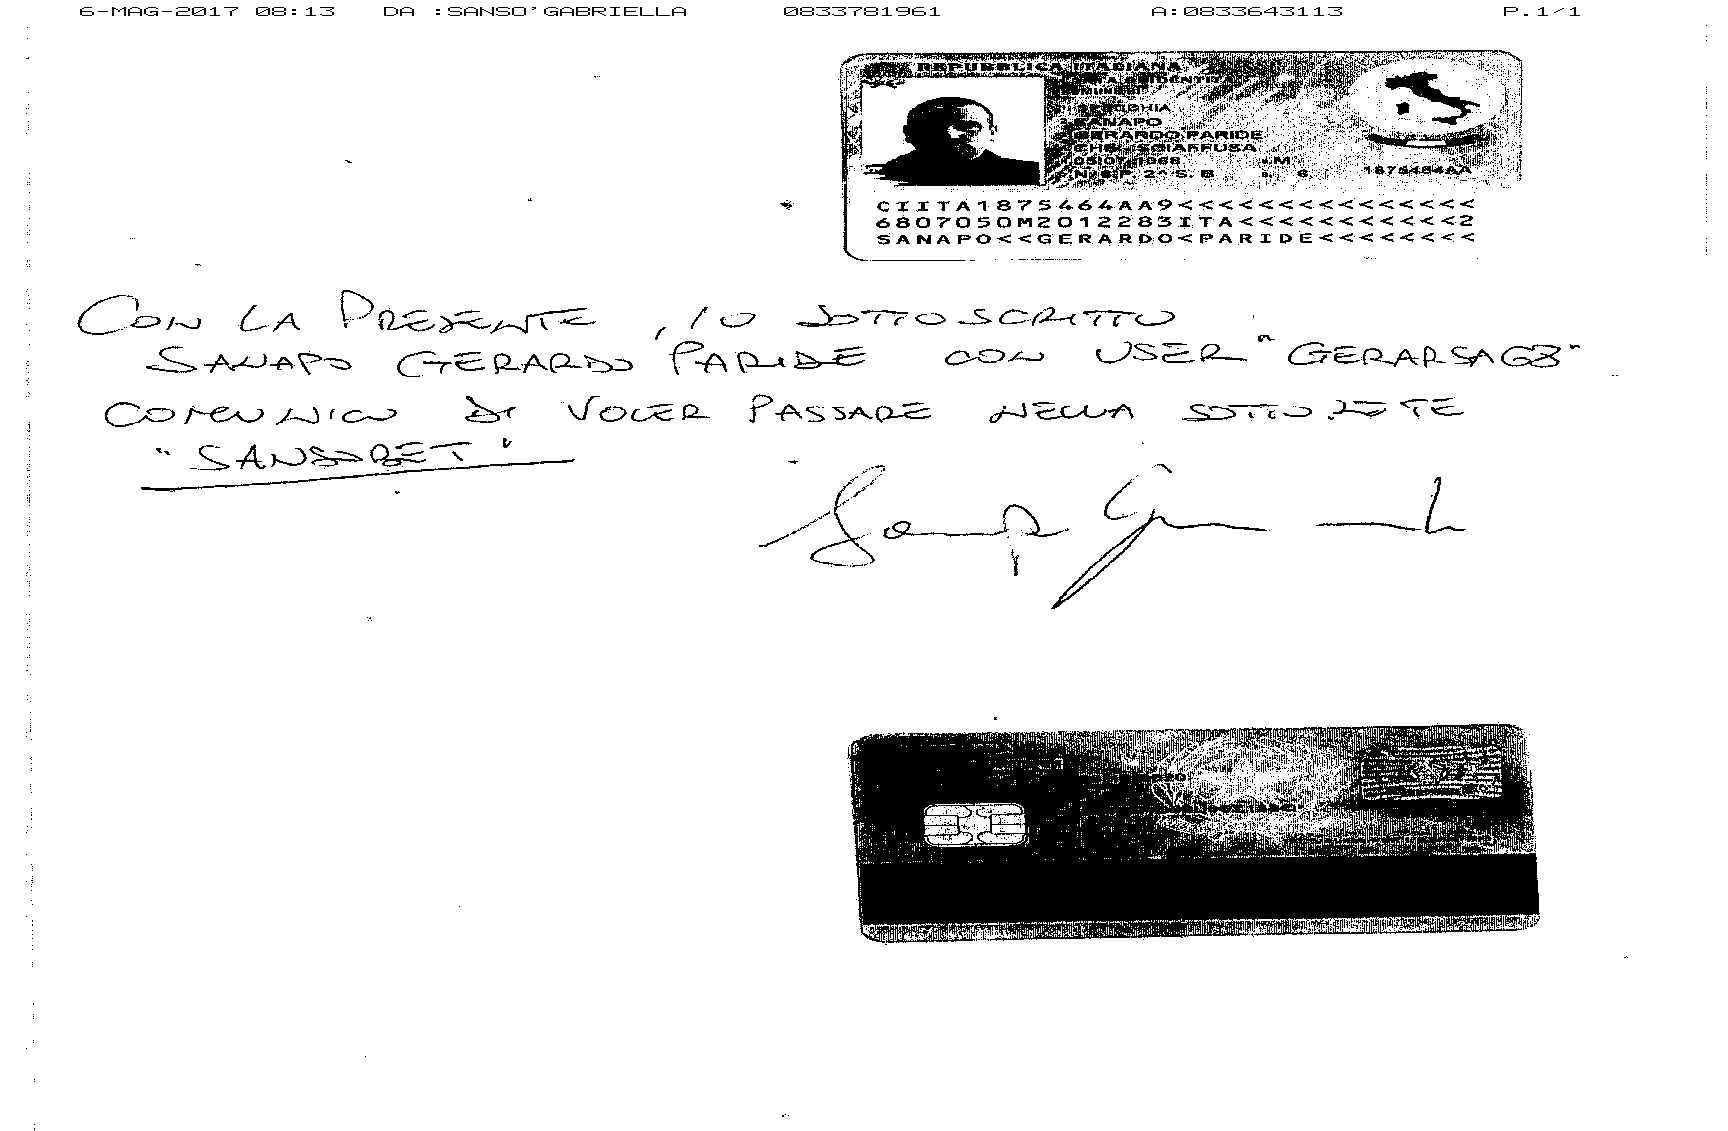 6-MAG-2017 08:13 DA :SANSO'GABRIELLA 0833781961 A:0833643113 P.1/1
REPUBBLICA ITALIANA
SANAPO
GERARDO PARIDE
SCIAFFUSA
CIITA1875464AA9<<<<<<<<<<<<<<<
6807050M2012283ITA<<<<<<<<<<<2
SANAPO<<GERARDO<PARIDE<<<<<<<<
CON LA PRESENTE, IO SOTTOSCRITTO
SANAPO GERARDO PARIDE CON USER "GERARSA68"
COMUNICO DI VOLER PASSARE NELLA SOTTORETE
"SANSOBET"